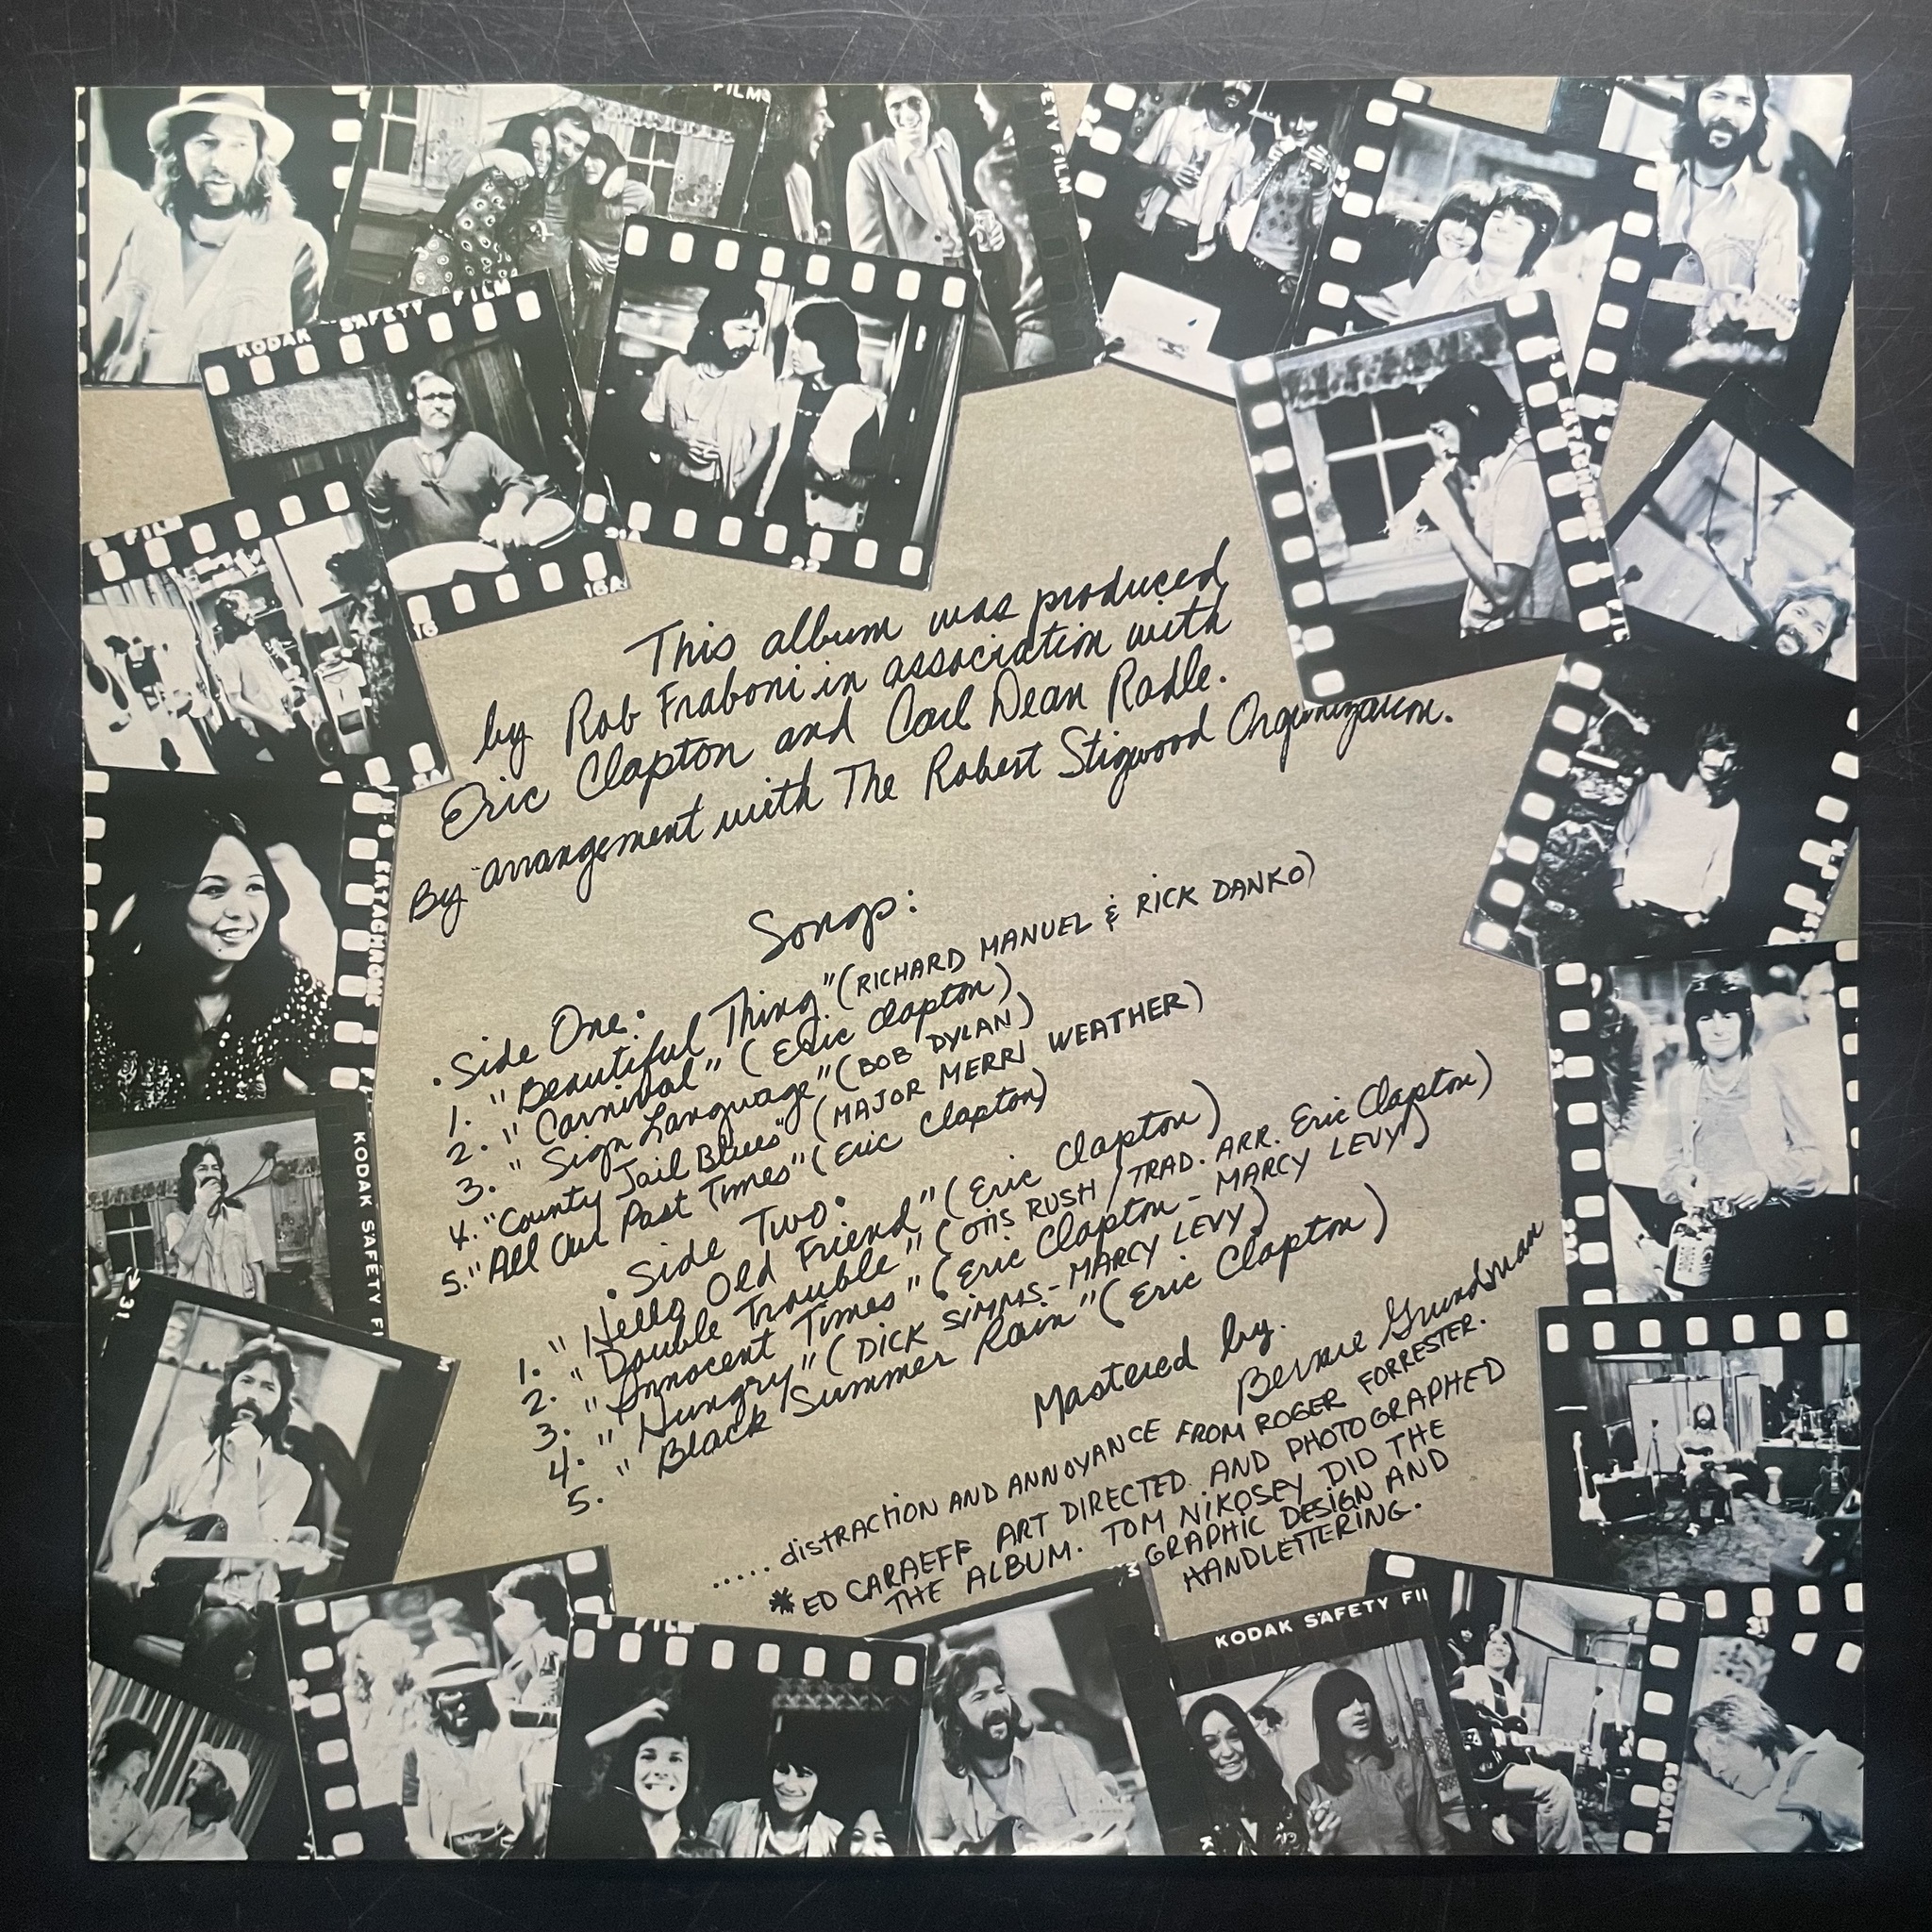 This album was produced
by Rob Fraboni in association with
Eric Clapton and Carl Dean Radle.
By arrangement with The Robert Stigwood Organization.
Songs:
• Side One •
1. "Beautiful Thing" (RICHARD MANUEL & RICK DANKO)
2. "Carnival" (Eric Clapton)
3. "Sign Language" (BOB DYLAN)
4. "County Jail Blues" (MAJOR MERRI WEATHER)
5. "All Our Past Times" (Eric Clapton)
• Side Two •
1. "Hello Old Friend" (Eric Clapton)
2. "Double Trouble" (OTIS RUSH / TRAD. ARR. Eric Clapton)
3. "Innocent Times" (Eric Clapton - MARCY LEVY)
4. "Hungry" (DICK SIMMS - MARCY LEVY)
5. "Black Summer Rain" (Eric Clapton)
Mastered by:
Bernie Grundman
..... distRACtiON AND ANNOYANCE FROM ROGER FORRESTER.
* ED CARAEFF ART DIRECTED AND PHOTOGRAPHED
THE ALBUM. TOM NiKOSEY DID THE
GRAPHIC DESIGN AND
HANDLETTERING.
FILM
ETY FILM
KODAK SAFETY FILM
16
16A
21A
22
KODAK SAFETY FI
31
KODAK SAFETY FI
KODAK